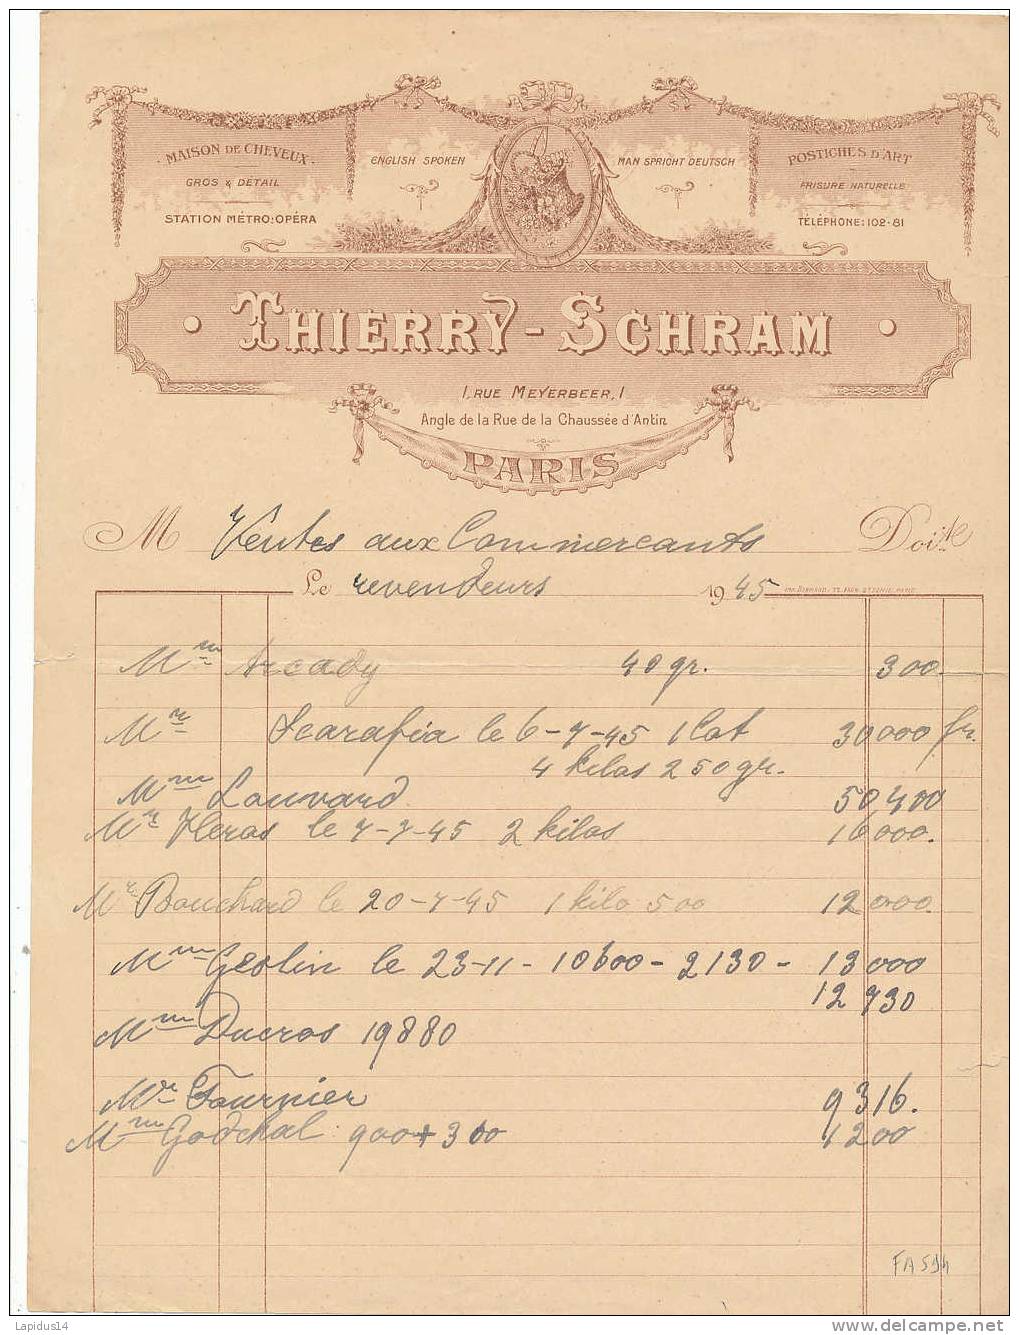 MAISON DE CHEVEUX
GROS & DÉTAIL
STATION MÉTRO: OPÉRA
ENGLISH SPOKEN
MAN SPRICHT DEUTSCH
POSTICHES D'ART
FRISURE NATURELLE
TÉLÉPHONE: 102-81
THIERRY-SCHRAM
1, RUE MEYERBEER, 1
Angle de la Rue de la Chaussée d'Antin
PARIS
M Ventes aux Commercants Doit
Le revendeurs 1945
Mm Arcady 40 gr. 300
Mr Scarafia le 6-7-45 1 Lot 30000 fr.
4 kilos 250 gr.
Mm Louvard 50400
Mr Heras le 7-7-45 2 kilos 16000.
Mr Bouchard le 20-7-45 1 kilo 500 12000.
Mm Geolin le 23-11 - 10600 - 2130 - 13000
12730
Mm Ducros 19880
Mr Fournier 9316.
Mm Godchal 900 + 300 1200
FA594
Lapidus14
www.delcampe.net